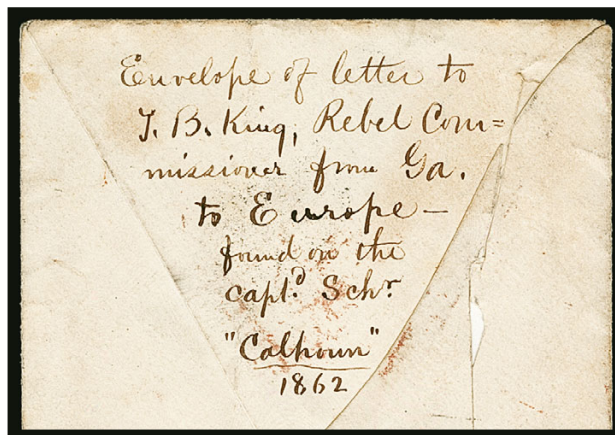 Envelope of letter to
T. B. King, Rebel Com=
missioner from Ga.
to Europe —
found on the
capt.d Schr
"Calhoun"
1862